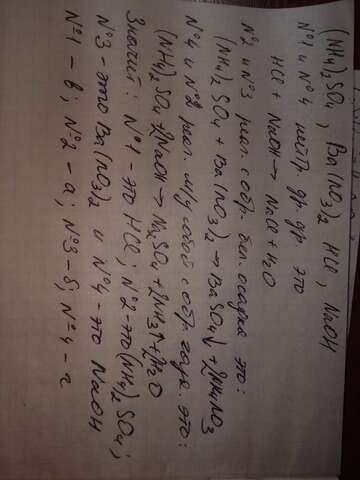 (NH4)2SO4, Ba(NO3)2 HCl, NaOH
№1 и №4 нейтр. др. др. это
HCl + NaOH → NaCl + H2O
№2 и №3 реаг. с обр. бел. осадка это:
(NH4)2SO4 + Ba(NO3)2 → BaSO4↓ + 2NH4NO3
№4 и №2 реаг. м/у собой с обр. газа. это:
(NH4)2SO4 + 2NaOH → Na2SO4 + 2NH3↑ + 2H2O
Значит: №1 - это HCl; №2 это (NH4)2SO4;
№3 - это Ba(NO3)2 и №4 - это NaOH
№1 - в; №2 - а; №3 - б; №4 - г